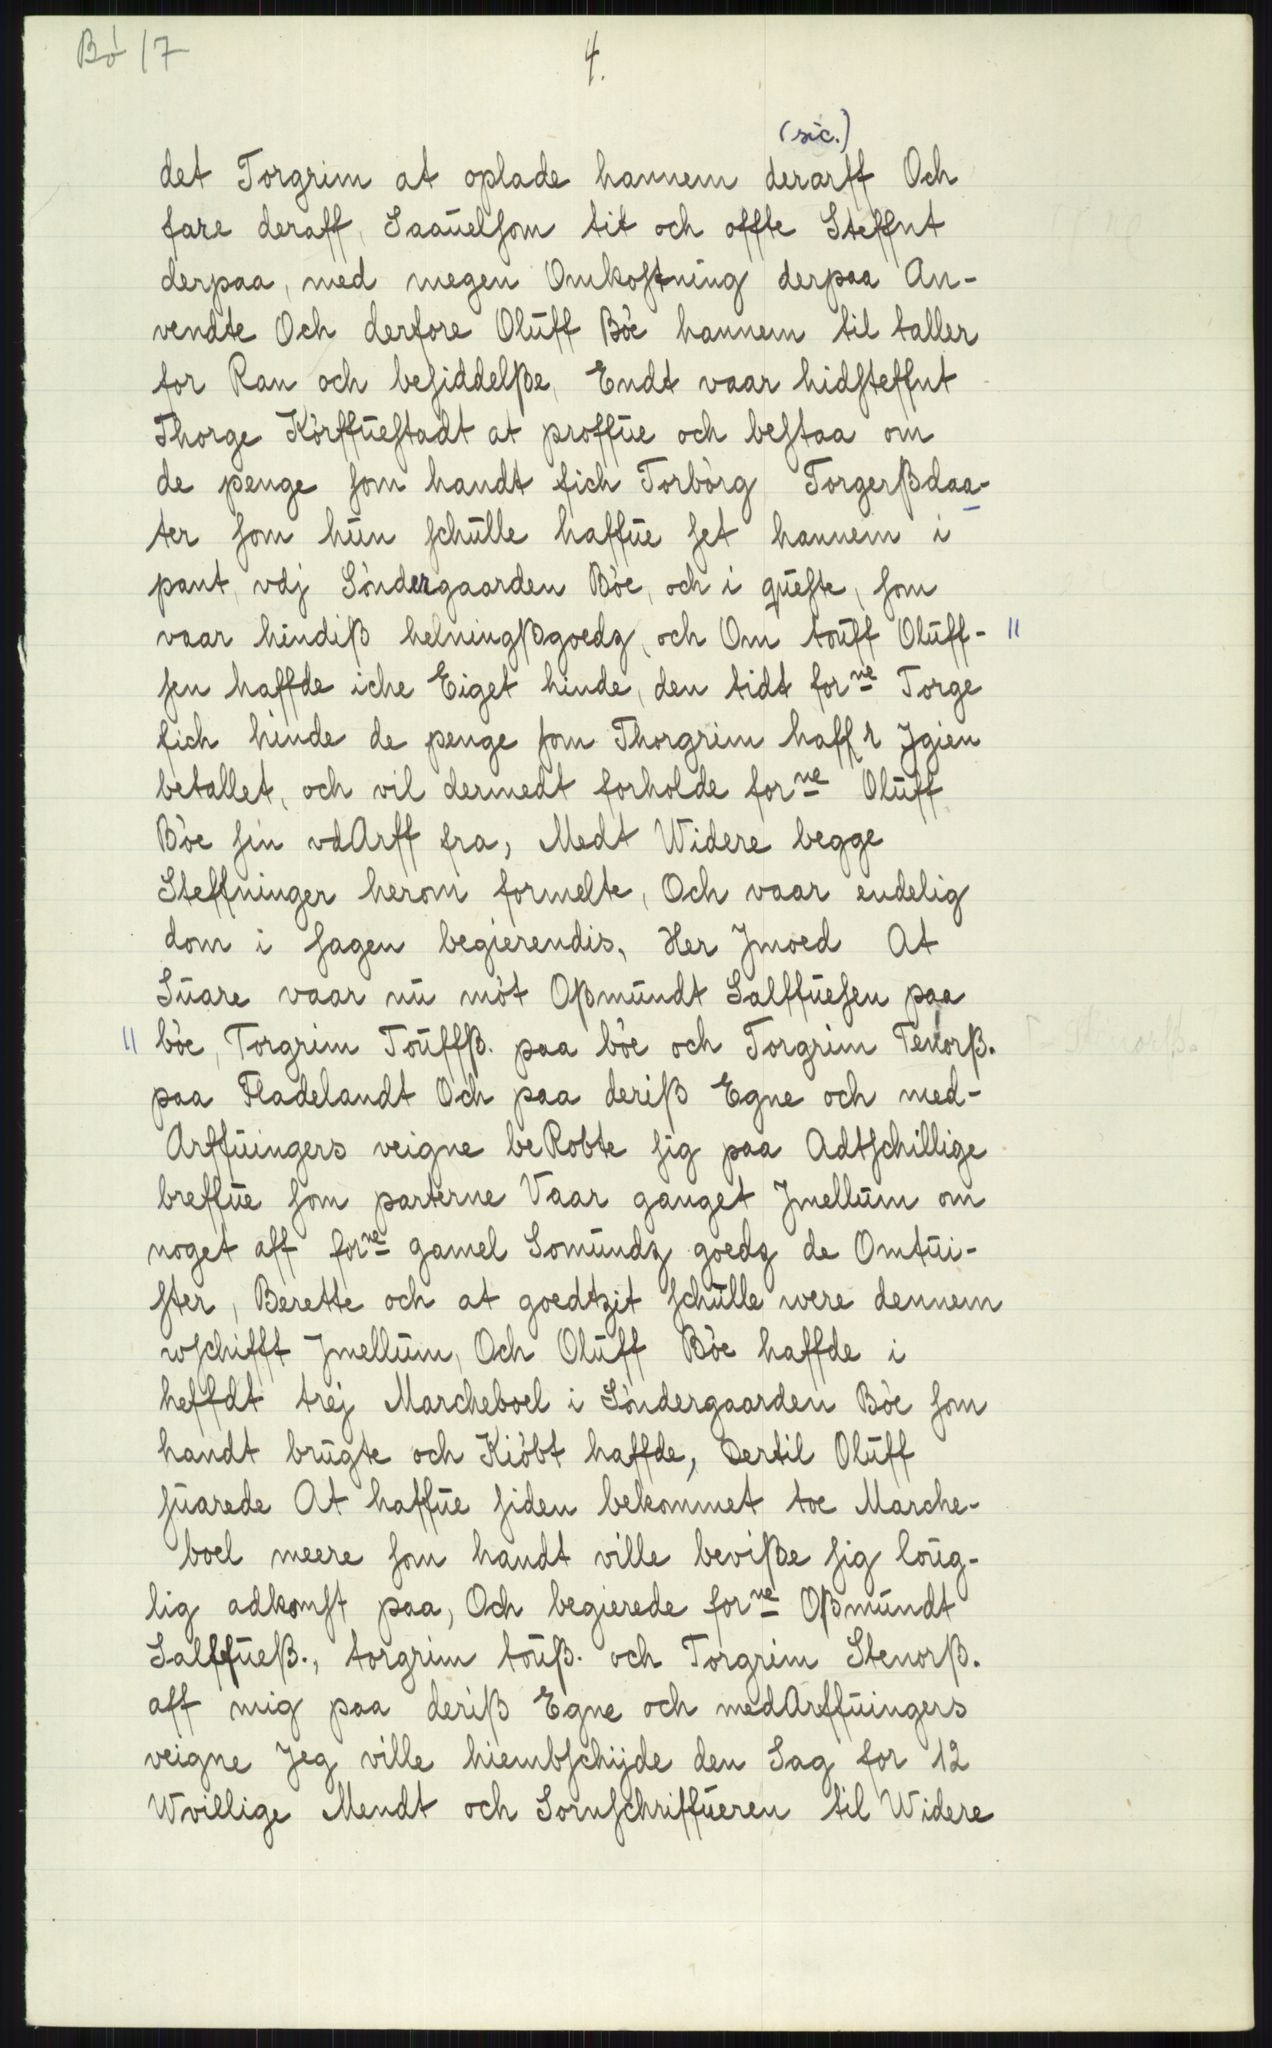 Bö 17
4.
(sic.)
det Torgrim at oplade hannem derarff Och
fare deraff, Saauelsom tit och offte Steffnt
derpaa, med megen Omkostning derpaa An-
vendte Och derfore Oluff Böe hannem til taller
for Ran och besiddelße, Endt vaar hidsteffnt
Thorge Körffuestadt at proffue och bestaa om
de penge som handt fich Torbörg Torgerßdaa-
ter som hun schulle haffue set hannem i
pant, vdj Söndergaarden Böe, och i queste, som
vaar hindiß helningßgoedz, och Om touff Oluff- "
sen haffde iche Eiget hinde, den tidt forne Torge
fich hinde de penge som Thorgrim haffr Jgien
betallet, och vil dermedt forholde forne Oluff
Böe sin vdArff fra, Medt Widere begge
Steffninger herom formelte, Och vaar endelig
dom i sagen begierendis, Her Jmoed At
Suare vaar nu möt Oßmundt Salffuesen paa
" böe, Torgrim Touffß. paa böe och Torgrim Tenorß. Γ Stenorß.
paa Fladelandt Och paa deriß Egne och med-
Arffuingers veigne beRobte sig paa Adtschillige
breffue som parterne Vaar ganget Jmellum om
noget aff forne gamel Somundz goedz de Omtui-
ster, Berette och at goedtzit schulle were dennem
wschifft Jmellum, Och Oluff Böe haffde i
heffdt trej Marcheboel i Söndergaarden Böe som
handt brugte och Kiöbt haffde, Dertil Oluff
suarede At haffue siden bekommet toe Marche-
boel meere som handt ville beviße sig loug-
lig adkomst paa, Och begierede forne Oßmundt
Salffueß., torgrim touß. och Torgrim Stenorß.
aff mig paa deriß Egne och medArffuingers
veigne Jeg ville hiembschijde den Sag for 12
Wvillige Mendt och Sornschriffueren til Widere